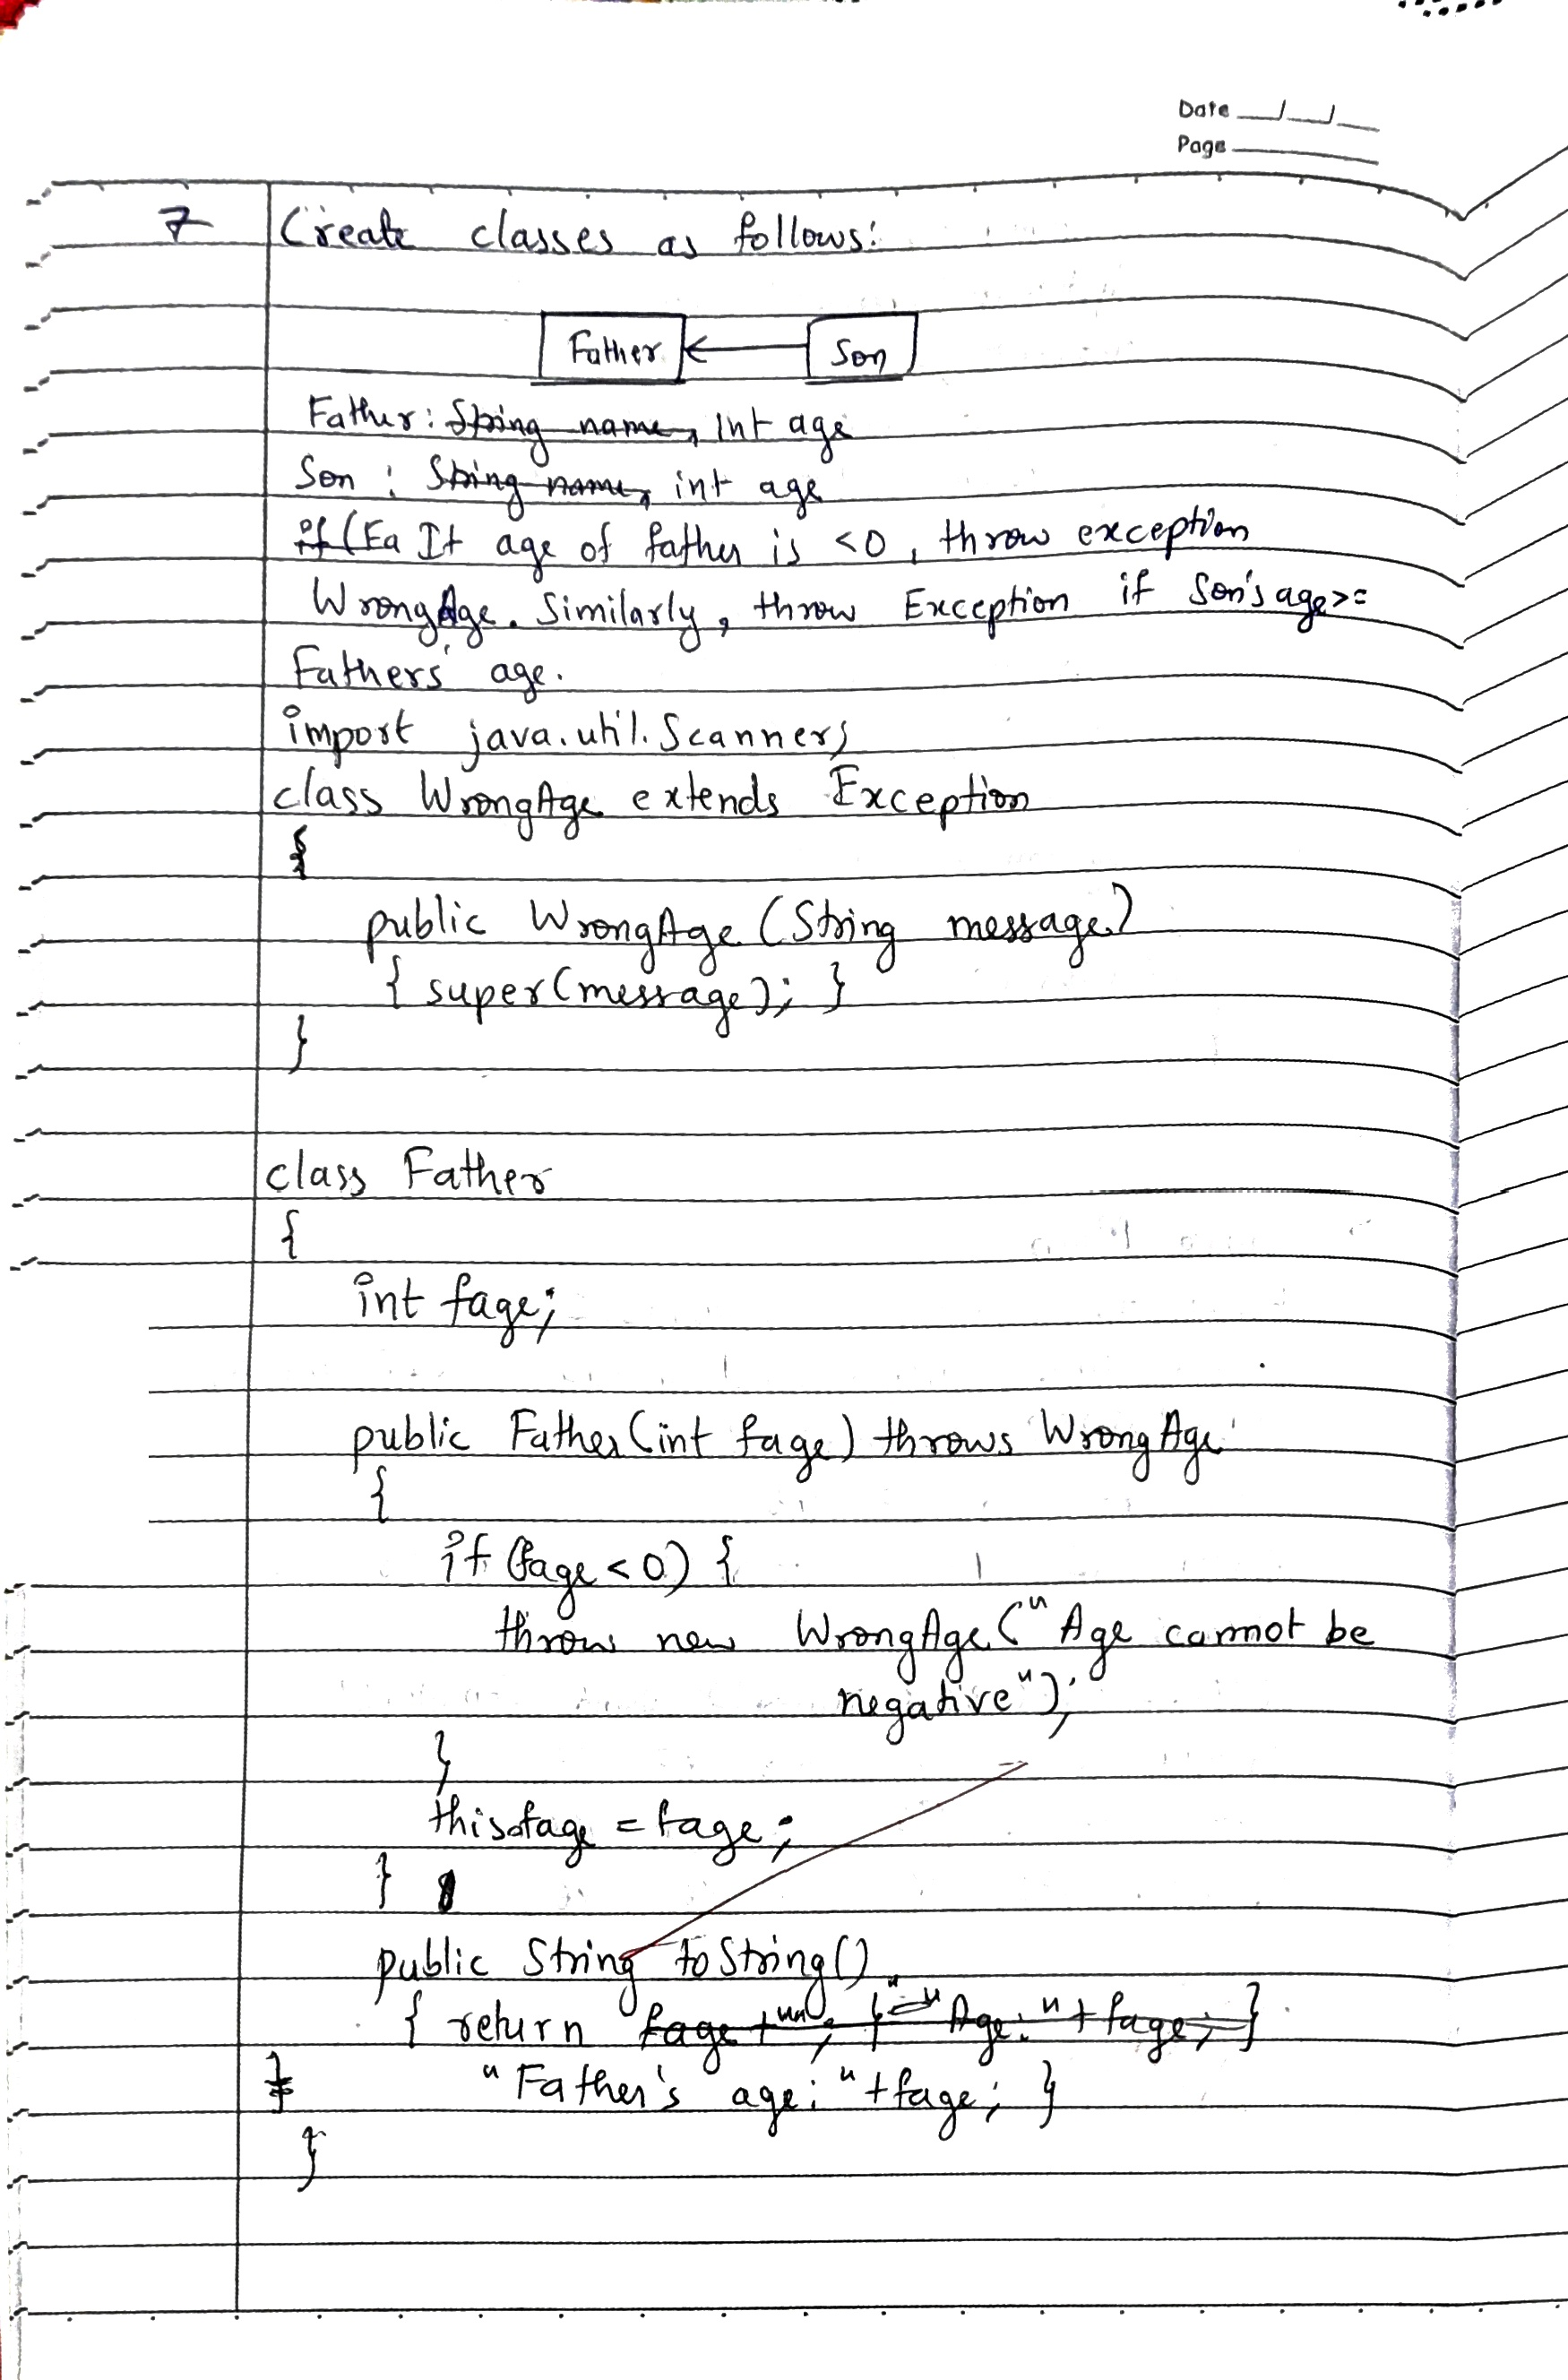 Date
Page
7 Create classes as follows:
Father Son
Father: String name, int age
Son : String name, int age
if (Fa If age of father is <0, throw exception
WrongAge. Similarly, throw Exception if Son's age>=
Fathers' age.
import java.util.Scanner;
class WrongAge extends Exception
{
public WrongAge (String message)
{ super(message); }
}
class Father
{
int fage;
public Father(int fage) throws WrongAge
{
if (fage<0) {
throw new WrongAge("Age cannot be
negative");
}
this.fage = fage;
}
public String toString()
{ return fage+""; } "Age: "+fage; }
} "Father's age: "+fage; }
}